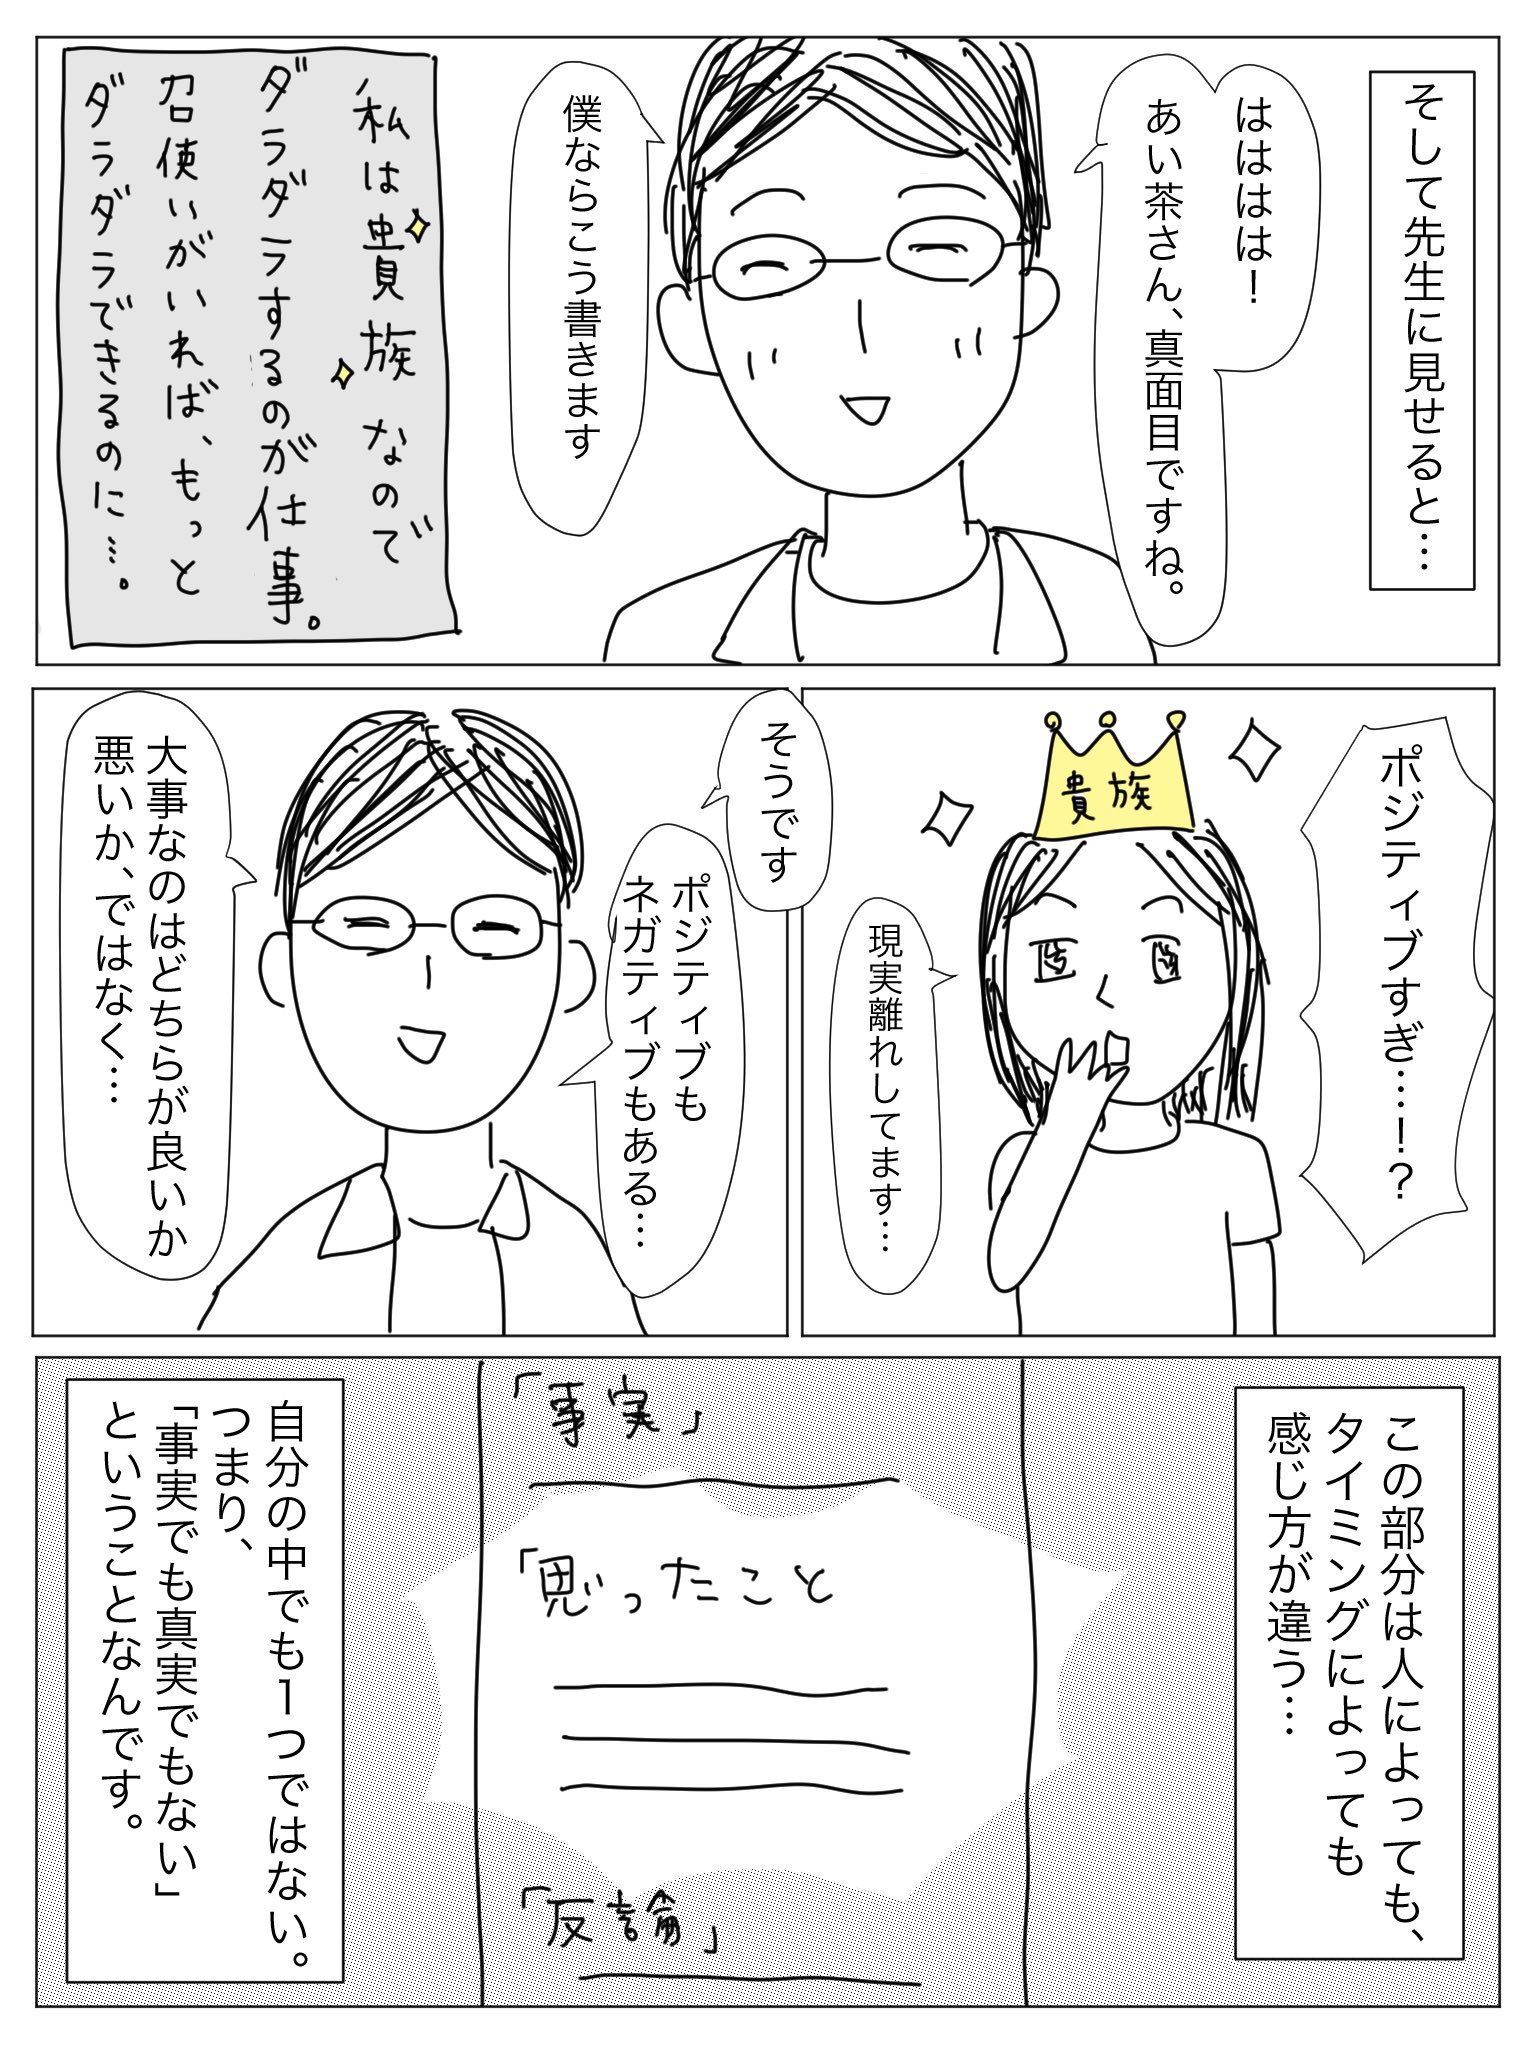 そして先生に見せると…
はははは！
あい茶さん、真面目ですね。
僕ならこう書きます
私は貴族なので
ダラダラするのが仕事。
召使いがいれば、もっと
ダラダラできるのに…。
ポジティブすぎ…！？
貴族
現実離れしてます…
そうです
ポジティブも
ネガティブもある…
大事なのはどちらが良いか
悪いか、ではなく…
この部分は人によっても、
タイミングによっても
感じ方が違う…
「事実」
「思ったこと
「反論」
自分の中でも1つではない。
つまり、
「事実でも真実でもない」
ということなんです。